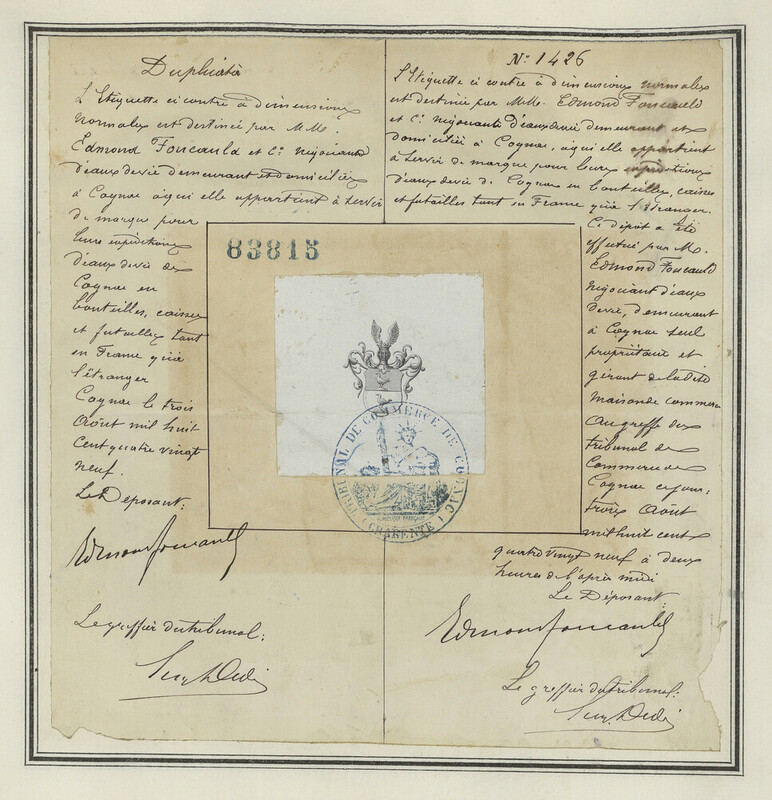 Duplicata
L'Etiquette ci contre à dimensions
normales est destinée par M.M.
Edmond Foucauld et Cie Négociants
d'eaux de vie demeurant et domiciliés
à Cognac à qui elle appartient à servir
de marque pour
leurs expéditions
d'eaux de vie de
Cognac en
bouteilles, caisses
et futailles tant
en France qu'à
l'étranger
Cognac le trois
Août mil huit
cent quatre vingt
neuf.
Le Déposant:
Edmond Foucauld
Le greffier du tribunal:
No 1426
L'Etiquette ci contre à dimensions normales
est destinée par M.M. Edmond Foucauld
et Cie Négociants d'eaux de vie demeurant et
domiciliés à Cognac, à qui elle appartient
à servir de marque pour leurs expéditions
d'eaux de vie de Cognac en bouteilles, caisses
et futailles tant en France qu'à l'étranger.
Ce dépôt a été
effectué par M.
Edmond Foucauld
Négociant d'eaux
de vie, demeurant
à Cognac seul
propriétaire et
gérant de la dite
maison de commerce
au greffe du
tribunal de
Commerce de
Cognac ce jour:
trois Août
mil huit cent
quatre vingt neuf à deux
heures de l'après midi
Le Déposant:
Edmond Foucauld
Le greffier du tribunal:
83815
TRIBUNAL DE COMMERCE DE COGNAC
RÉPUBLIQUE FRANÇAISE
(CHARENTE)